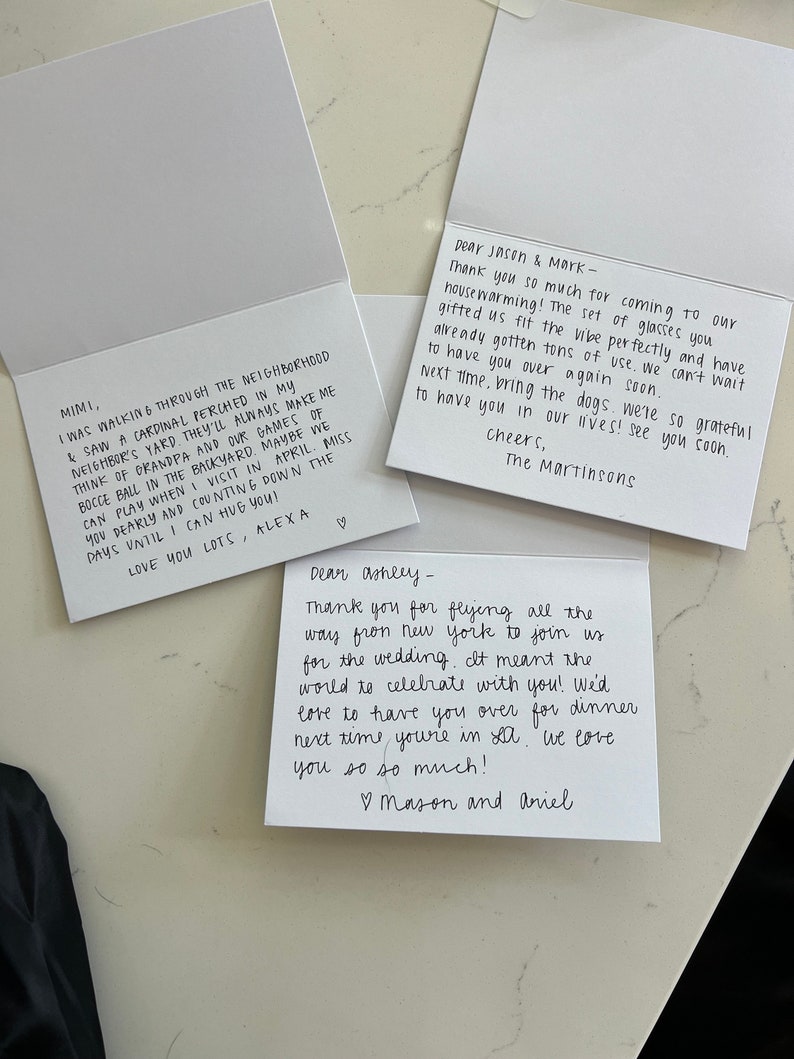 MIMI,
I WAS WALKING THROUGH THE NEIGHBORHOOD
& SAW A CARDINAL PERCHED IN MY
NEIGHBOR'S YARD. THEY'LL ALWAYS MAKE ME
THINK OF GRANDPA AND OUR GAMES OF
BOCCE BALL IN THE BACKYARD. MAYBE WE
CAN PLAY WHEN I VISIT IN APRIL. MISS
YOU DEARLY AND COUNTING DOWN THE
DAYS UNTIL I CAN HUG YOU!
LOVE YOU LOTS, ALEXA ♡
Dear Jason & Mark –
Thank you so much for coming to our
housewarming! The set of glasses you
gifted us fit the vibe perfectly and have
already gotten tons of use. We can't wait
to have you over again soon.
Next time, bring the dogs. We're so grateful
to have you in our lives! See you soon.
Cheers,
The Martinsons
Dear Ashley –
Thank you for flyjeng all the
way fron New York to join us
for the wedding. It meant the
world to celebrate with you! We'd
love to have you over for dinner
next time you're in LA. We love
you so so much!
♡ Mason and Ariel